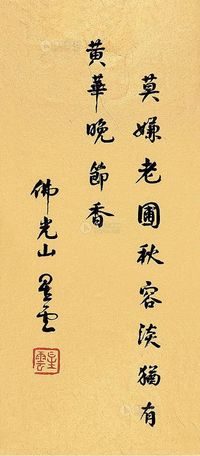 莫嫌老圃秋容淡猶有
黃華晚節香
佛光山 星雲
星雲